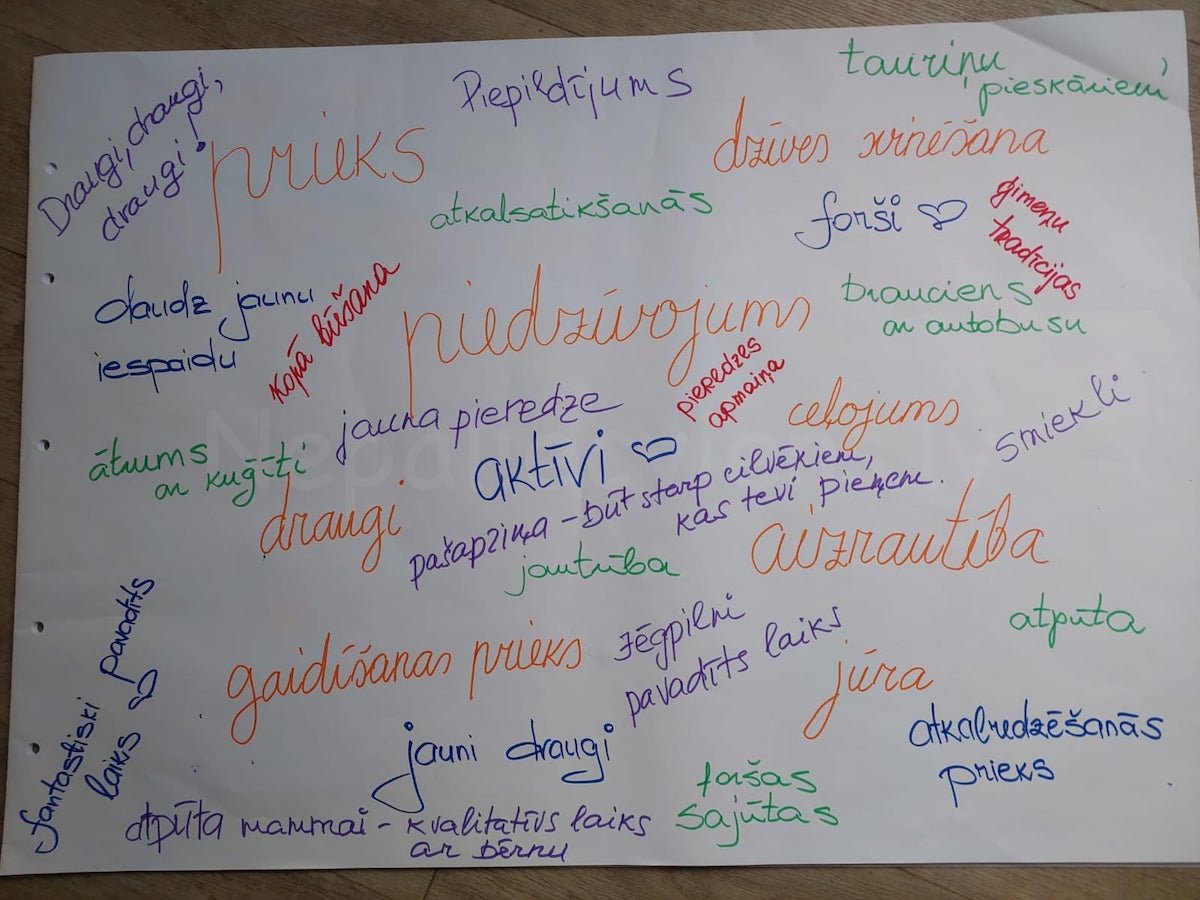 Draugi, draugi,
draugi!
Piepildījums
tauriņu
pieskārieni
prieks
dzīves svinēšana
atkalsatikšanās
forši
ģimeņu
tradīcijas
daudz jaunu
iespaidu
kopā būšana
piedzīvojums
brauciens
ar autobusu
pieredzes
apmaiņa
jauna pieredze
ceļojums
smiekli
ātrums
ar kuģīti
aktīvi
draugi
pašapziņa - būt starp cilvēkiem,
kas tevi pieņem.
jautrība
aizrautība
fantastiski pavadīts
laiks
gaidīšanas prieks
zēgpilni
pavadīts laiks
atpūta
jūra
jauni draugi
atkalredzēšanās
prieks
foršas
sajūtas
atpūta mammai - kvalitatīvs laiks
ar bērnu